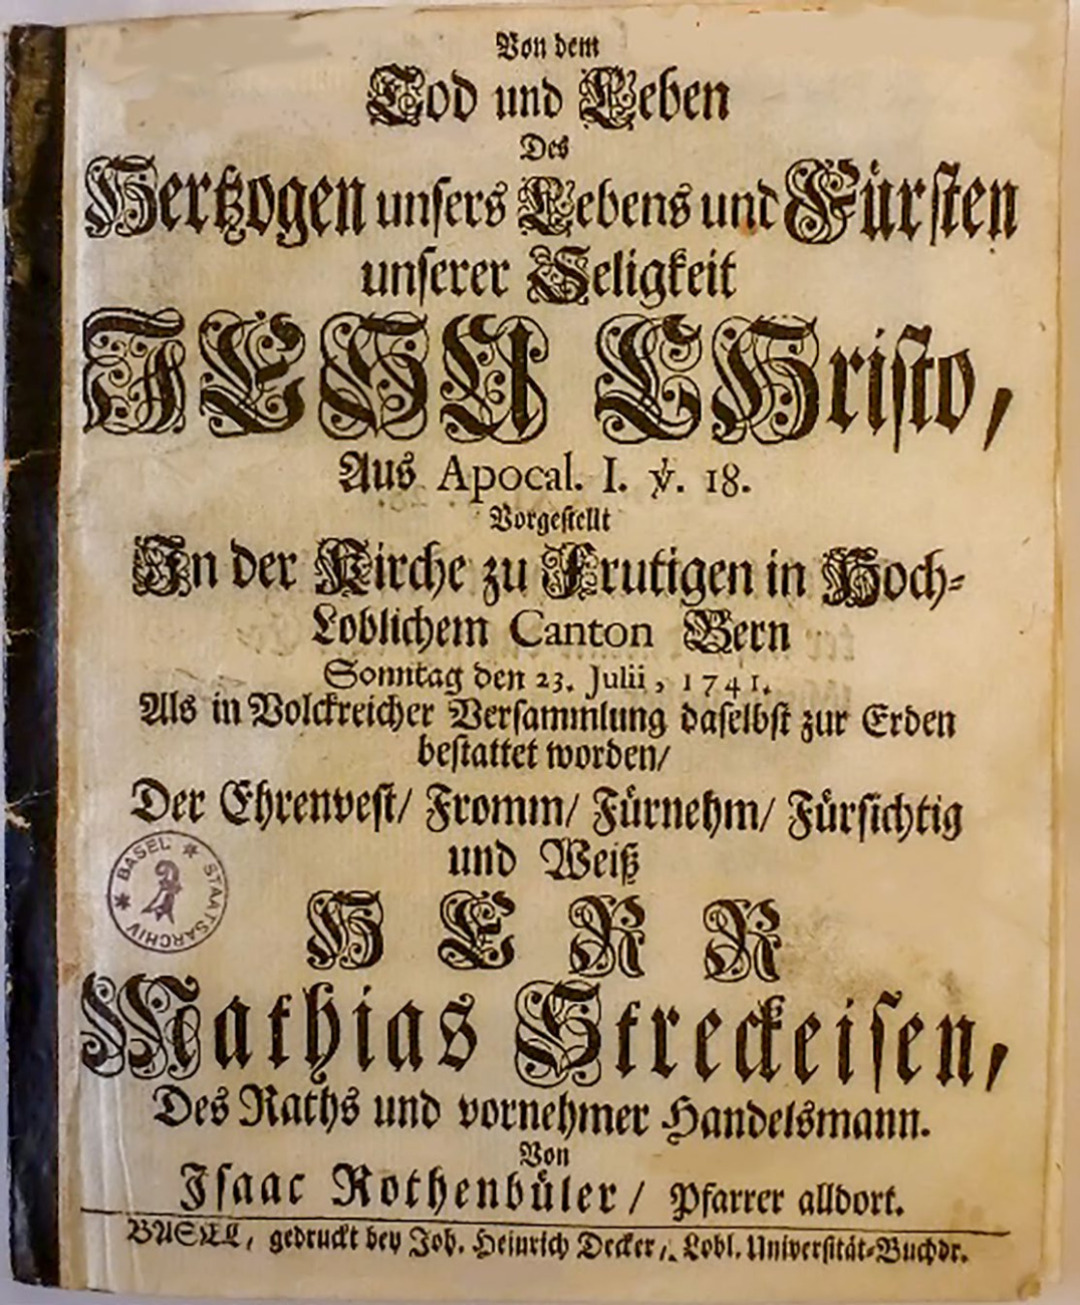 Von dem
Tod und Leben
Des
Hertzogen unsers Lebens und Fürsten
unserer Seligkeit
JESU CHristo,
Aus Apocal. I. ꝟ. 18.
Vorgestellt
In der Kirche zu Frutigen in Hoch-
Loblichem Canton Bern
Sonntag den 23. Julii, 1741.
Als in Volckreicher Versammlung daselbst zur Erden
bestattet worden/
Der Ehrenvest/ Fromm/ Fürnehm/ Fürsichtig
und Weiß
HERR
Mathias Streckeisen,
Des Raths und vornehmer Handelsmann.
Von
Isaac Rothenbüler/ Pfarrer alldort.
BASEL, gedruckt bey Joh. Heinrich Decker, Lobl. Universität-Buchdr.
BASEL * STAATSARCHIV *